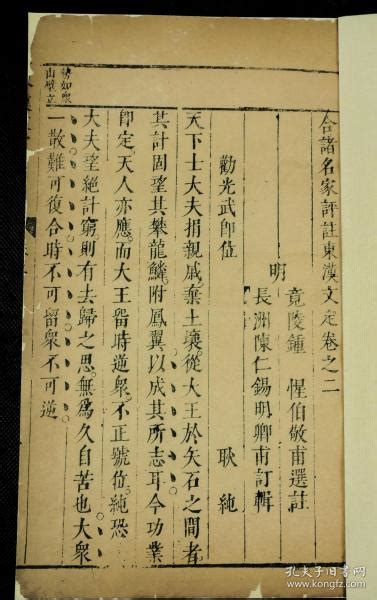 合諸名家評註東漢文定卷之二
明
竟陵鍾惺伯敬甫選註
長洲陳仁錫明卿甫訂輯
勸光武即位
耿純
天下士大夫捐親戚棄土壤從大王於矢石之間者
其計固望其攀龍鱗附鳳翼以成其所志耳今功業
即定天人亦應而大王留時逆衆不正號位純恐
大夫望絕計窮則有去歸之思無爲久自苦也大衆
一散難可復合時不可留衆不可逆
勢如衆
山壁立
孔夫子旧书网